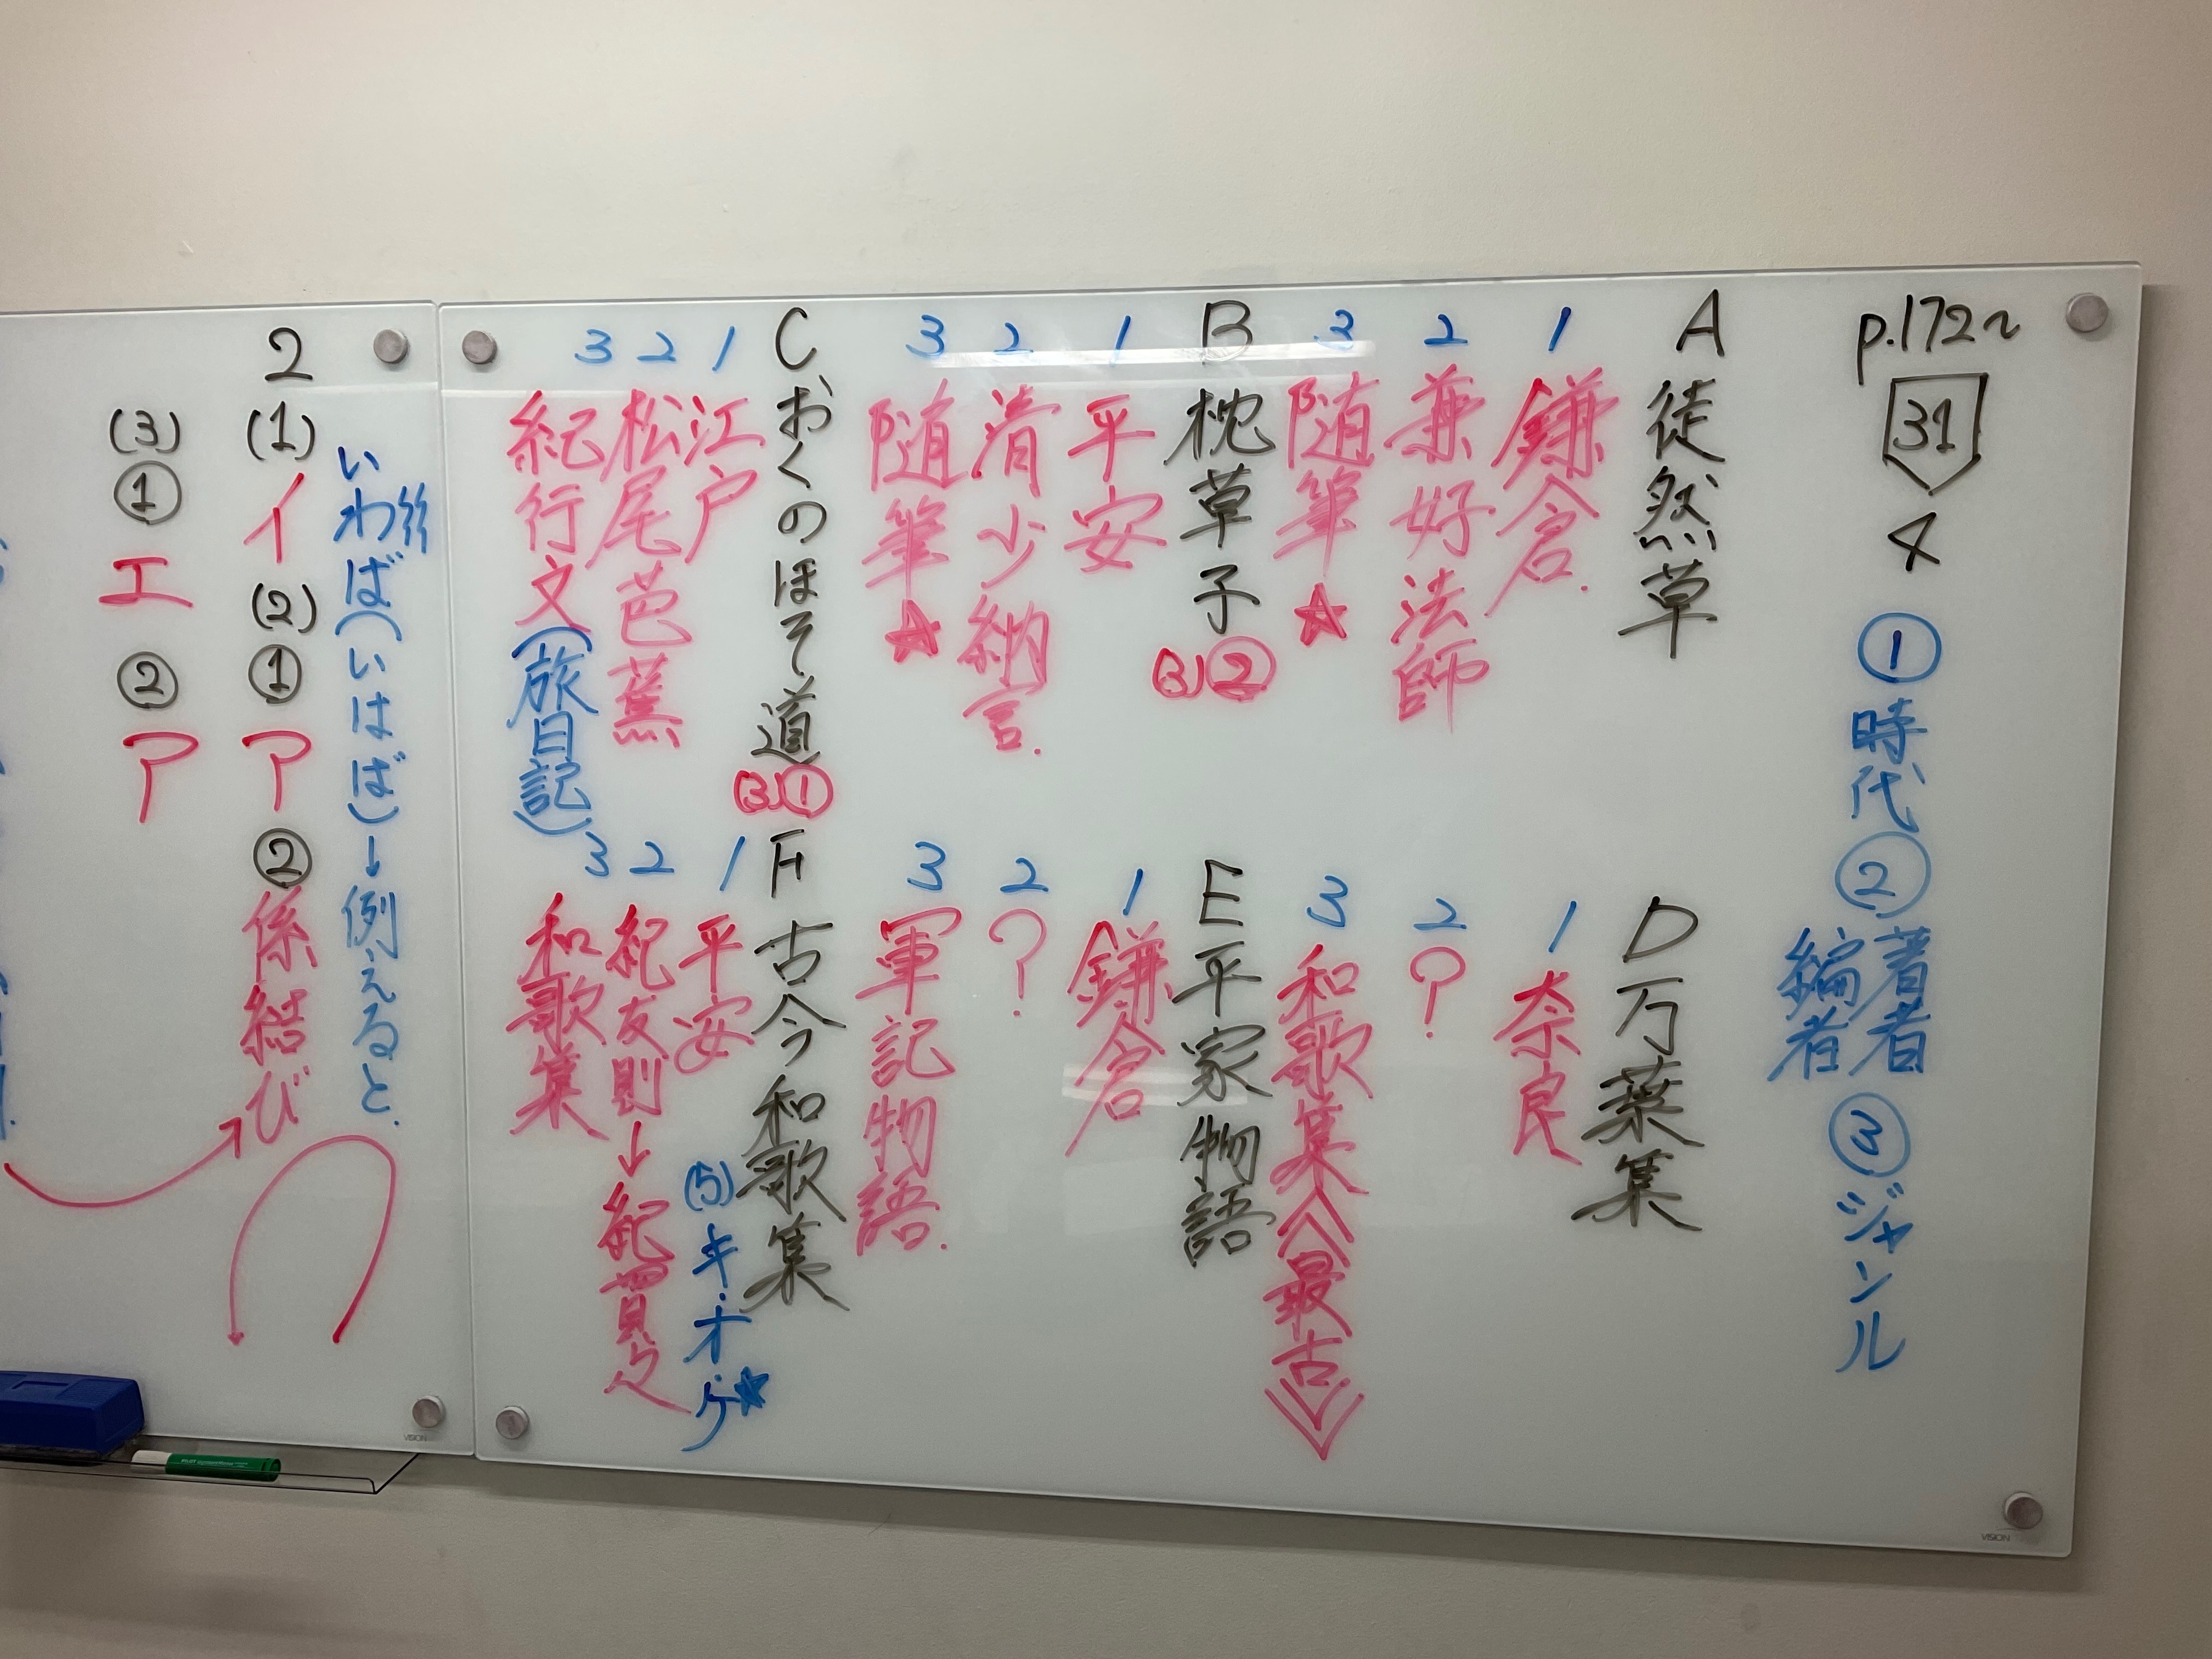 p.172~
31
4
①時代②著者
編者
③ジャンル
A 徒然草
1 鎌倉.
2 兼好法師
3 随筆★
B 枕草子(3)②
1 平安
2 清少納言.
3 随筆★
C おくのほそ道(3)①
1 江戸
2 松尾芭蕉
3 紀行文(旅日記)
D 万葉集
1 奈良
2 ?
3 和歌集《最古》
E 平家物語
1 鎌倉
2 ?
3 軍記物語.
F 古今和歌集
(5)キ・オ・ケ★
1 平安
2 紀友則→紀貫之
3 和歌集
いわば(いはば)→例えると.
2
(1)イ(2)①ア②係結び
(3)①エ②ア
VISION
VISION
PILOT